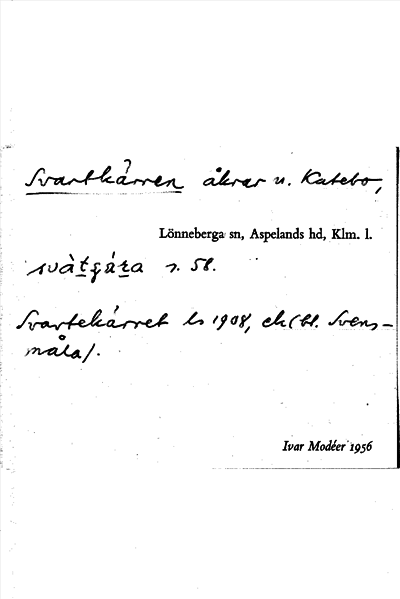 Svartkärren åkrar u. Katebo,
Lönneberga sn, Aspelands hd, Klm. l.
s. 58.
Svartekärret ls 1908, ek (bl. Svens-
måla).
Ivar Modéer 1956